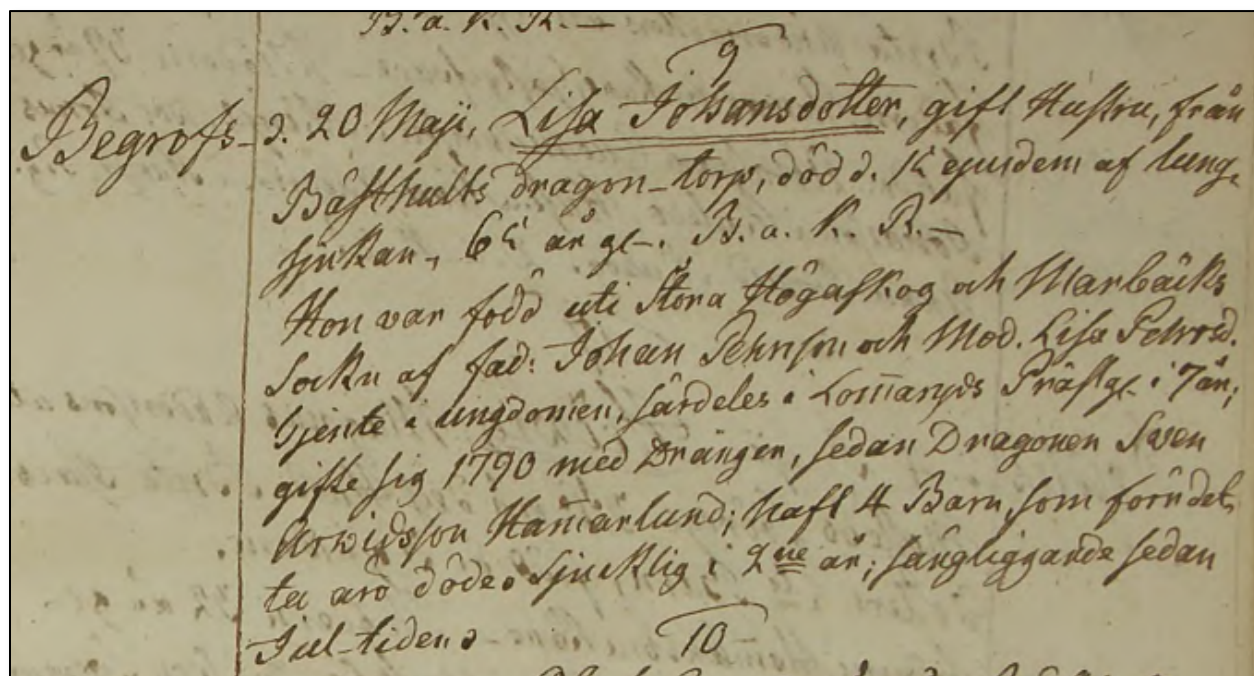 B. a. K. R. —
9
Begrofs d. 20 Maji, Lisa Johansdotter, gift Hustru, från
Båsthults dragon-torp, död d. 14 ejusdem af lung-
sjukan, 64 år gl. B. a. K. R. —
Hon var född uti Stora Högaskog och Marbäcks
Sockn af fad: Johan Pehrson och Mod. Lisa Pehrsd.
tjente i ungdomen, särdeles i Lommaryds Prästgl. i 7 år;
gifte sig 1790 med Drängen, sedan Dragonen Sven
Arvidsson Hamarlund; haft 4 Barn, som förrdet
ta äro döde. Sjucklig i 2ne år; sängliggande sedan
Jul-tiden.
10